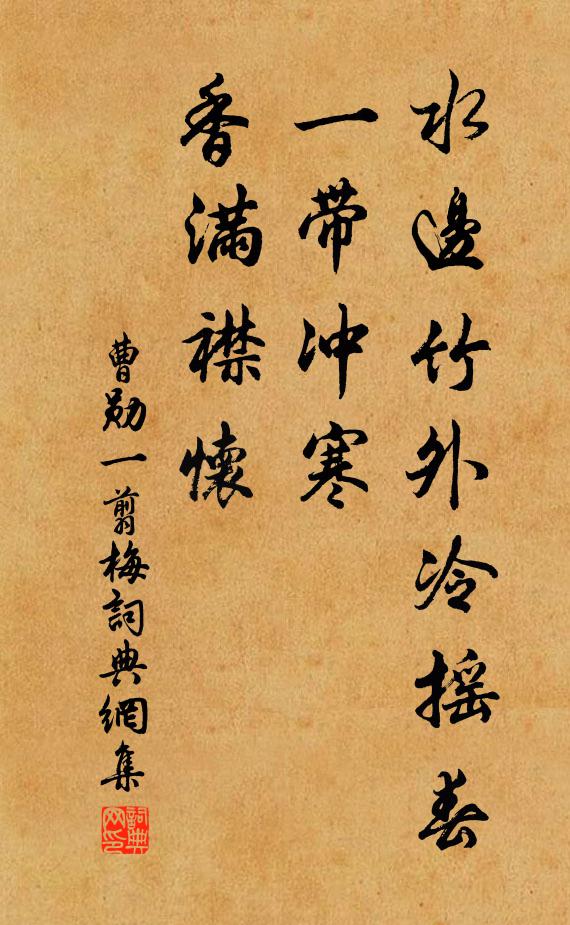 水邊竹外冷摇春
一帶冲寒
香滿襟懷
曹勛一剪梅詞典網集
詞典网印